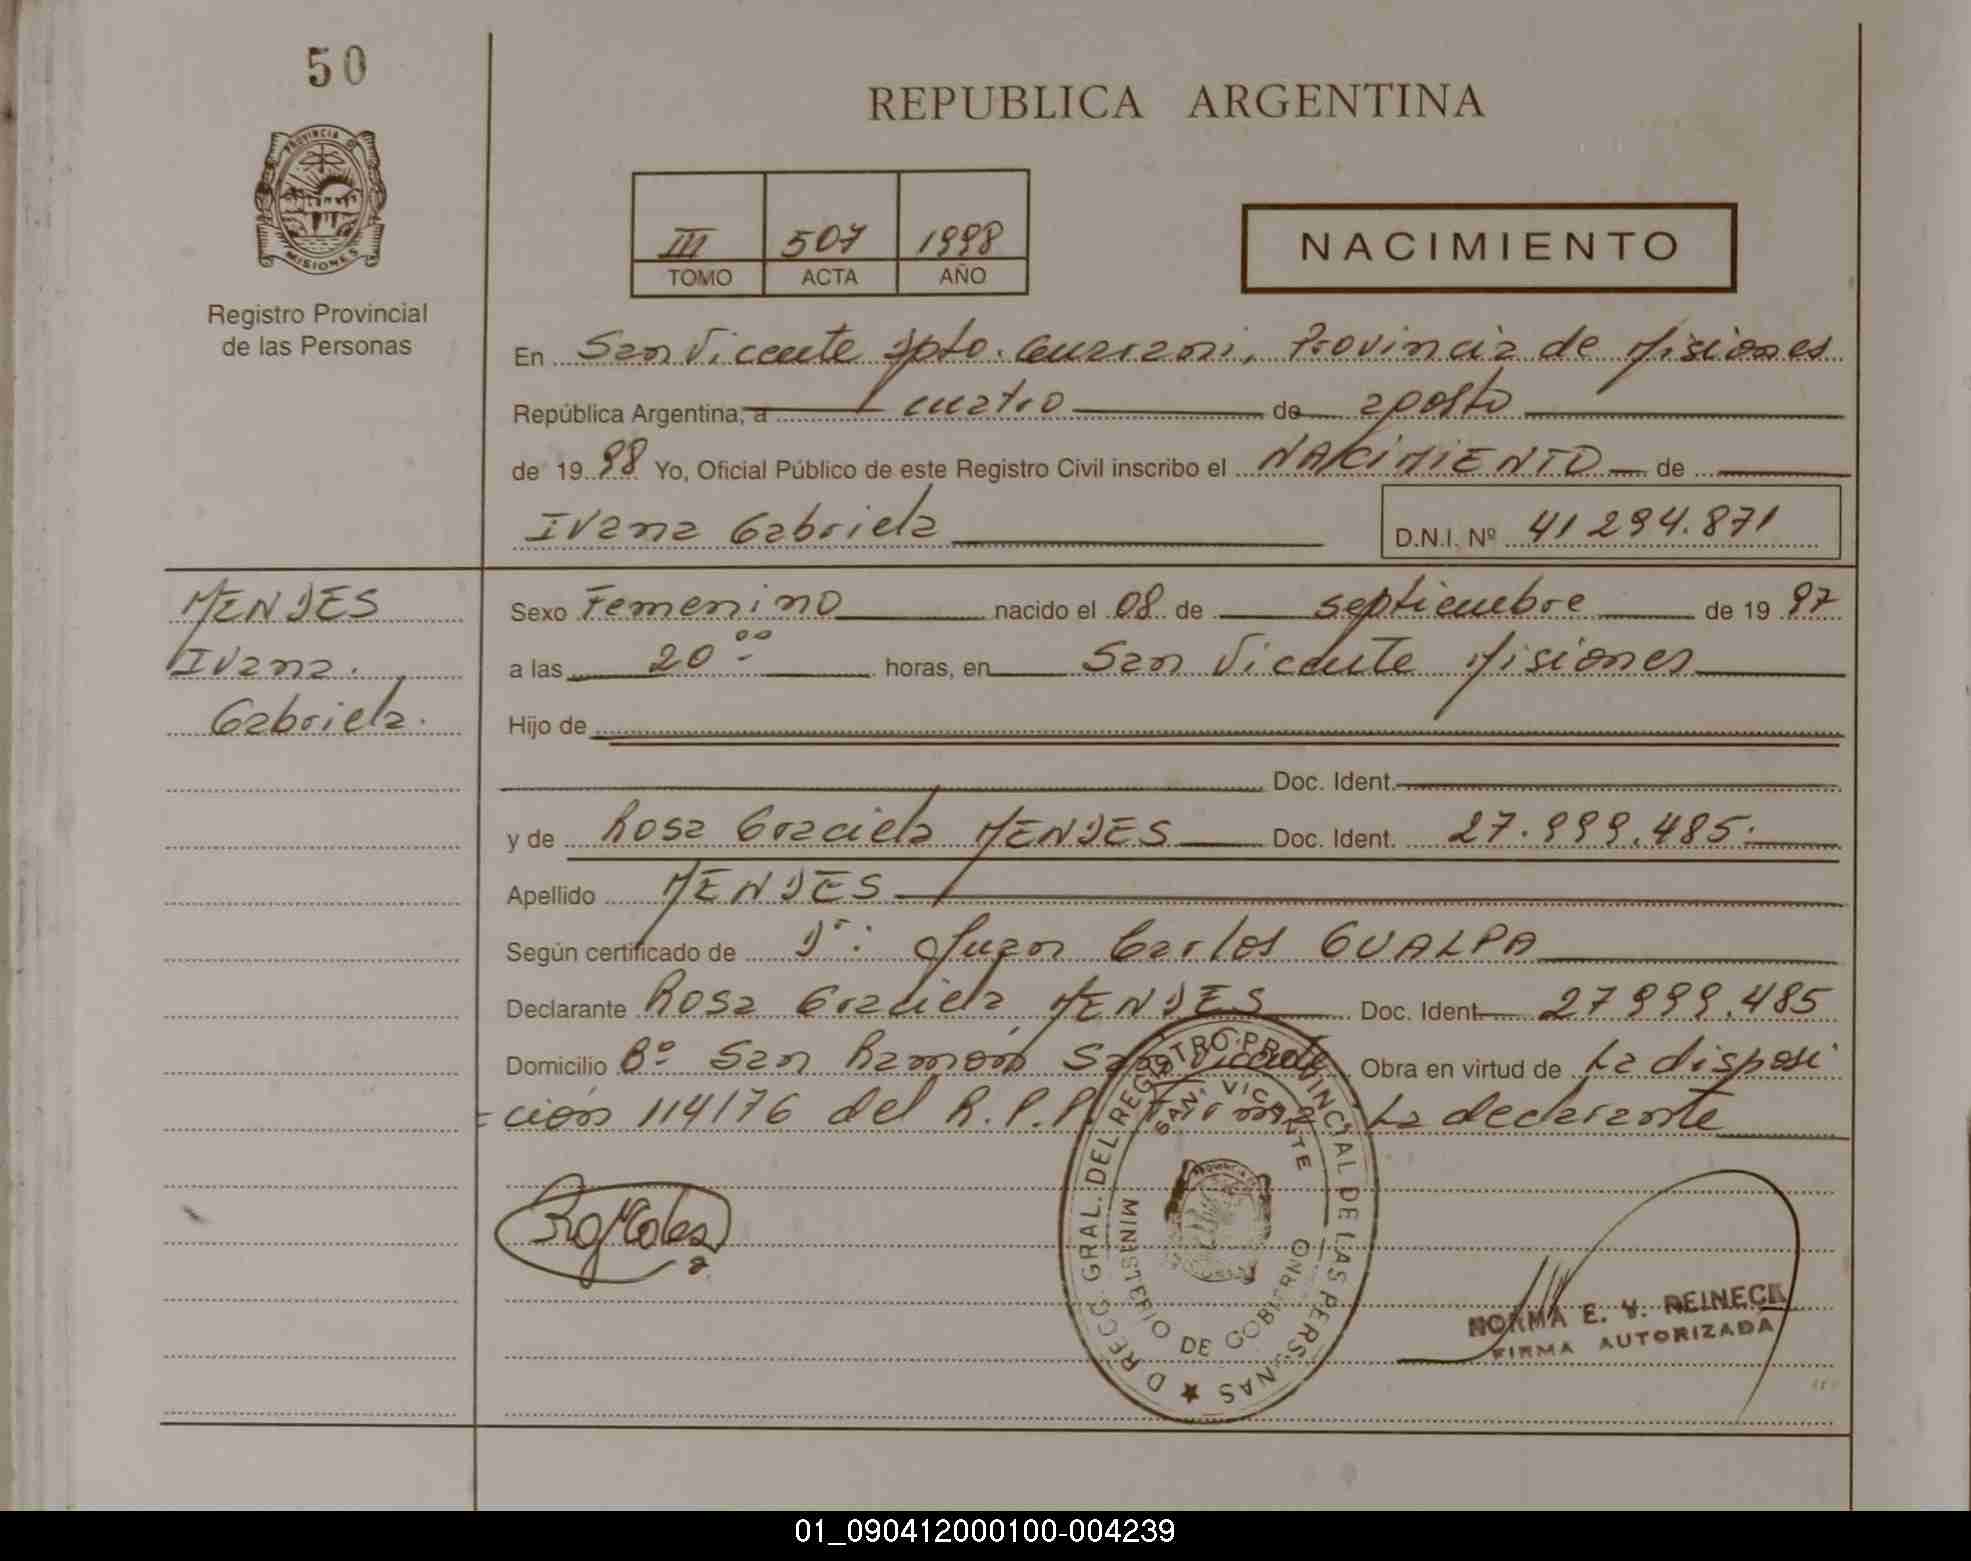 50
REPUBLICA ARGENTINA
PROVINCIA DE
MISIONES
Registro Provincial
de las Personas
III 507 1998
TOMO ACTA AÑO
NACIMIENTO
En San Vicente Dpto. Guarani, Provincia de Misiones
República Argentina, a cuatro de agosto
de 19 98 Yo, Oficial Público de este Registro Civil inscribo el NACIMIENTO de
Ivana Gabriela D.N.I. Nº 41 294.871
MENDES
Ivana.
Gabriela.
Sexo Femenino nacido el 08 de septiembre de 19 97
a las 20 oo horas, en San Vicente Misiones
Hijo de
Doc. Ident.
y de Rosa Graciela MENDES Doc. Ident. 27.999.485.
Apellido MENDES
Según certificado de Dr: Juan Carlos GUALPA
Declarante Rosa Graciela MENDES Doc. Ident. 27 999.485
Domicilio Bº San Ramón San Vicente Obra en virtud de La disposi
=ción 114/76 del R.P.P. Firma La declarante
DIRECC. GRAL. DEL REGISTRO PROVINCIAL DE LAS PERSONAS
SAN VICENTE
MINISTERIO DE GOBIERNO
NORMA E. V. REINECK
FIRMA AUTORIZADA
01_090412000100-004239